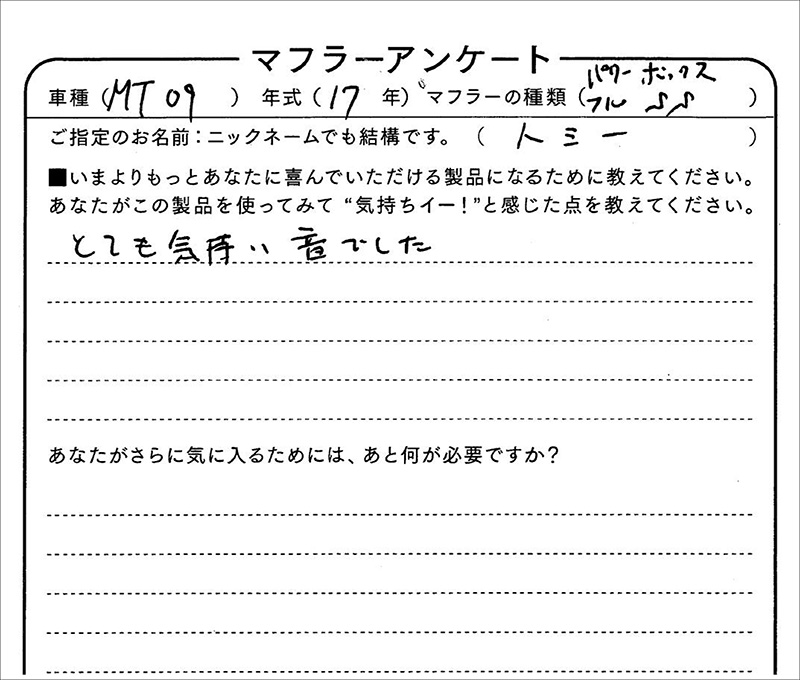 マフラーアンケート
車種（MT 09）年式（17年）マフラーの種類（パワーボックス
フル SS）
ご指定のお名前：ニックネームでも結構です。（トミー）
■いまよりもっとあなたに喜んでいただける製品になるために教えてください。
あなたがこの製品を使ってみて“気持ちイー！”と感じた点を教えてください。
とても気持い音でした
あなたがさらに気に入るためには、あと何が必要ですか？